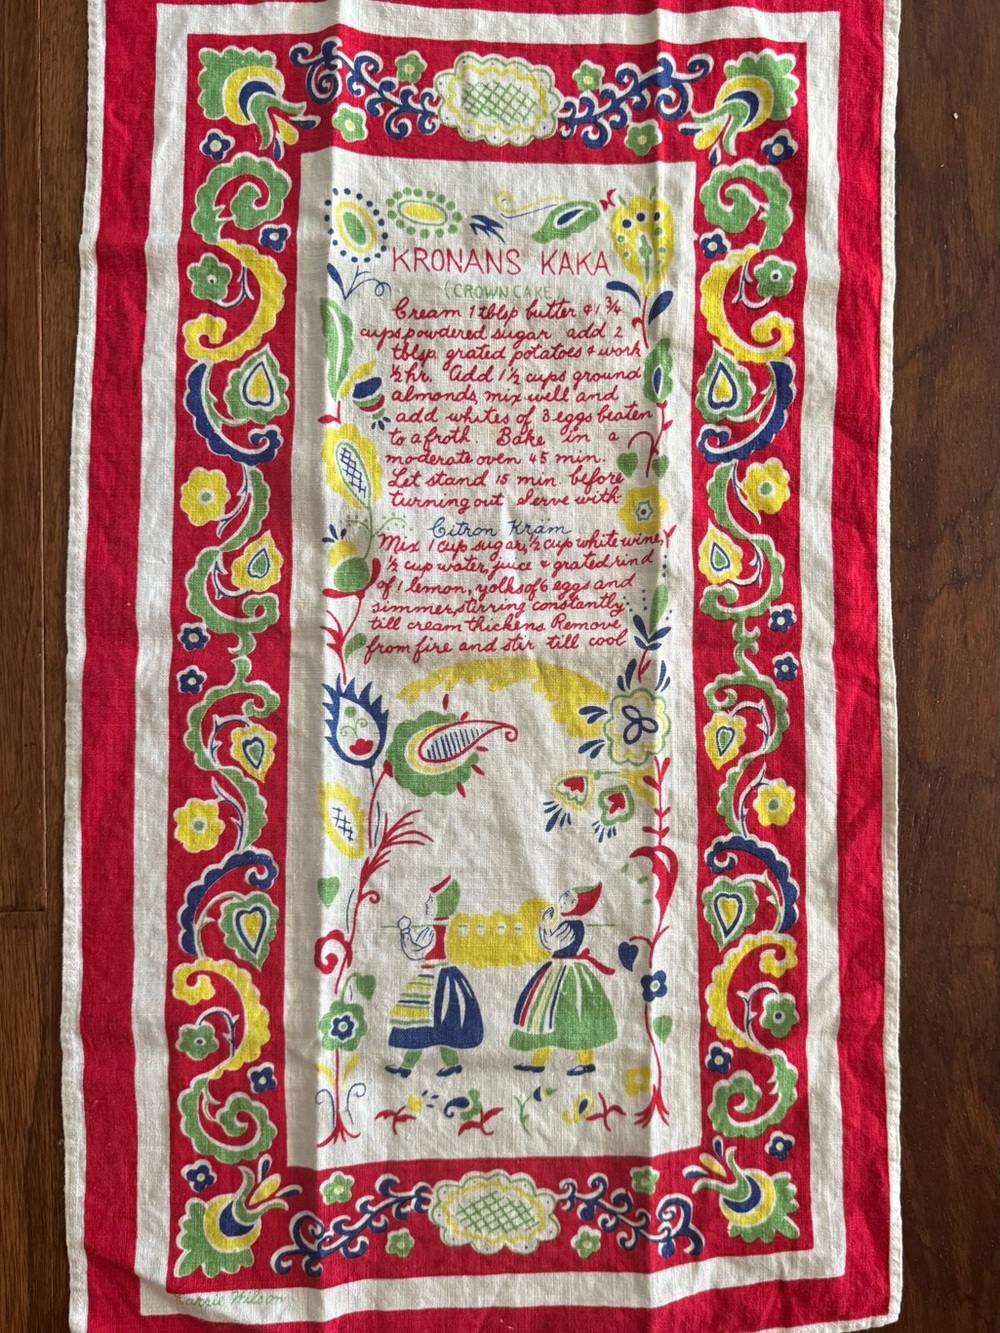 KRONANS KAKA
(CROWN CAKE)
Cream 1 tblsp butter & 1 3/4
cups powdered sugar add 2
tblsp grated potatoes & work
1/2 hr. Add 1 1/2 cups ground
almonds, mix well and
add whites of 3 eggs beaten
to a froth. Bake in a
moderate oven 45 min.
Let stand 15 min. before
turning out Serve with
Citron Kräm
Mix 1 cup sugar, 1/2 cup white wine,
1/2 cup water, juice & grated rind
of 1 lemon, yolks of 6 eggs and
simmer, stirring constantly
till cream thickens. Remove
from fire and stir till cool
Wilson